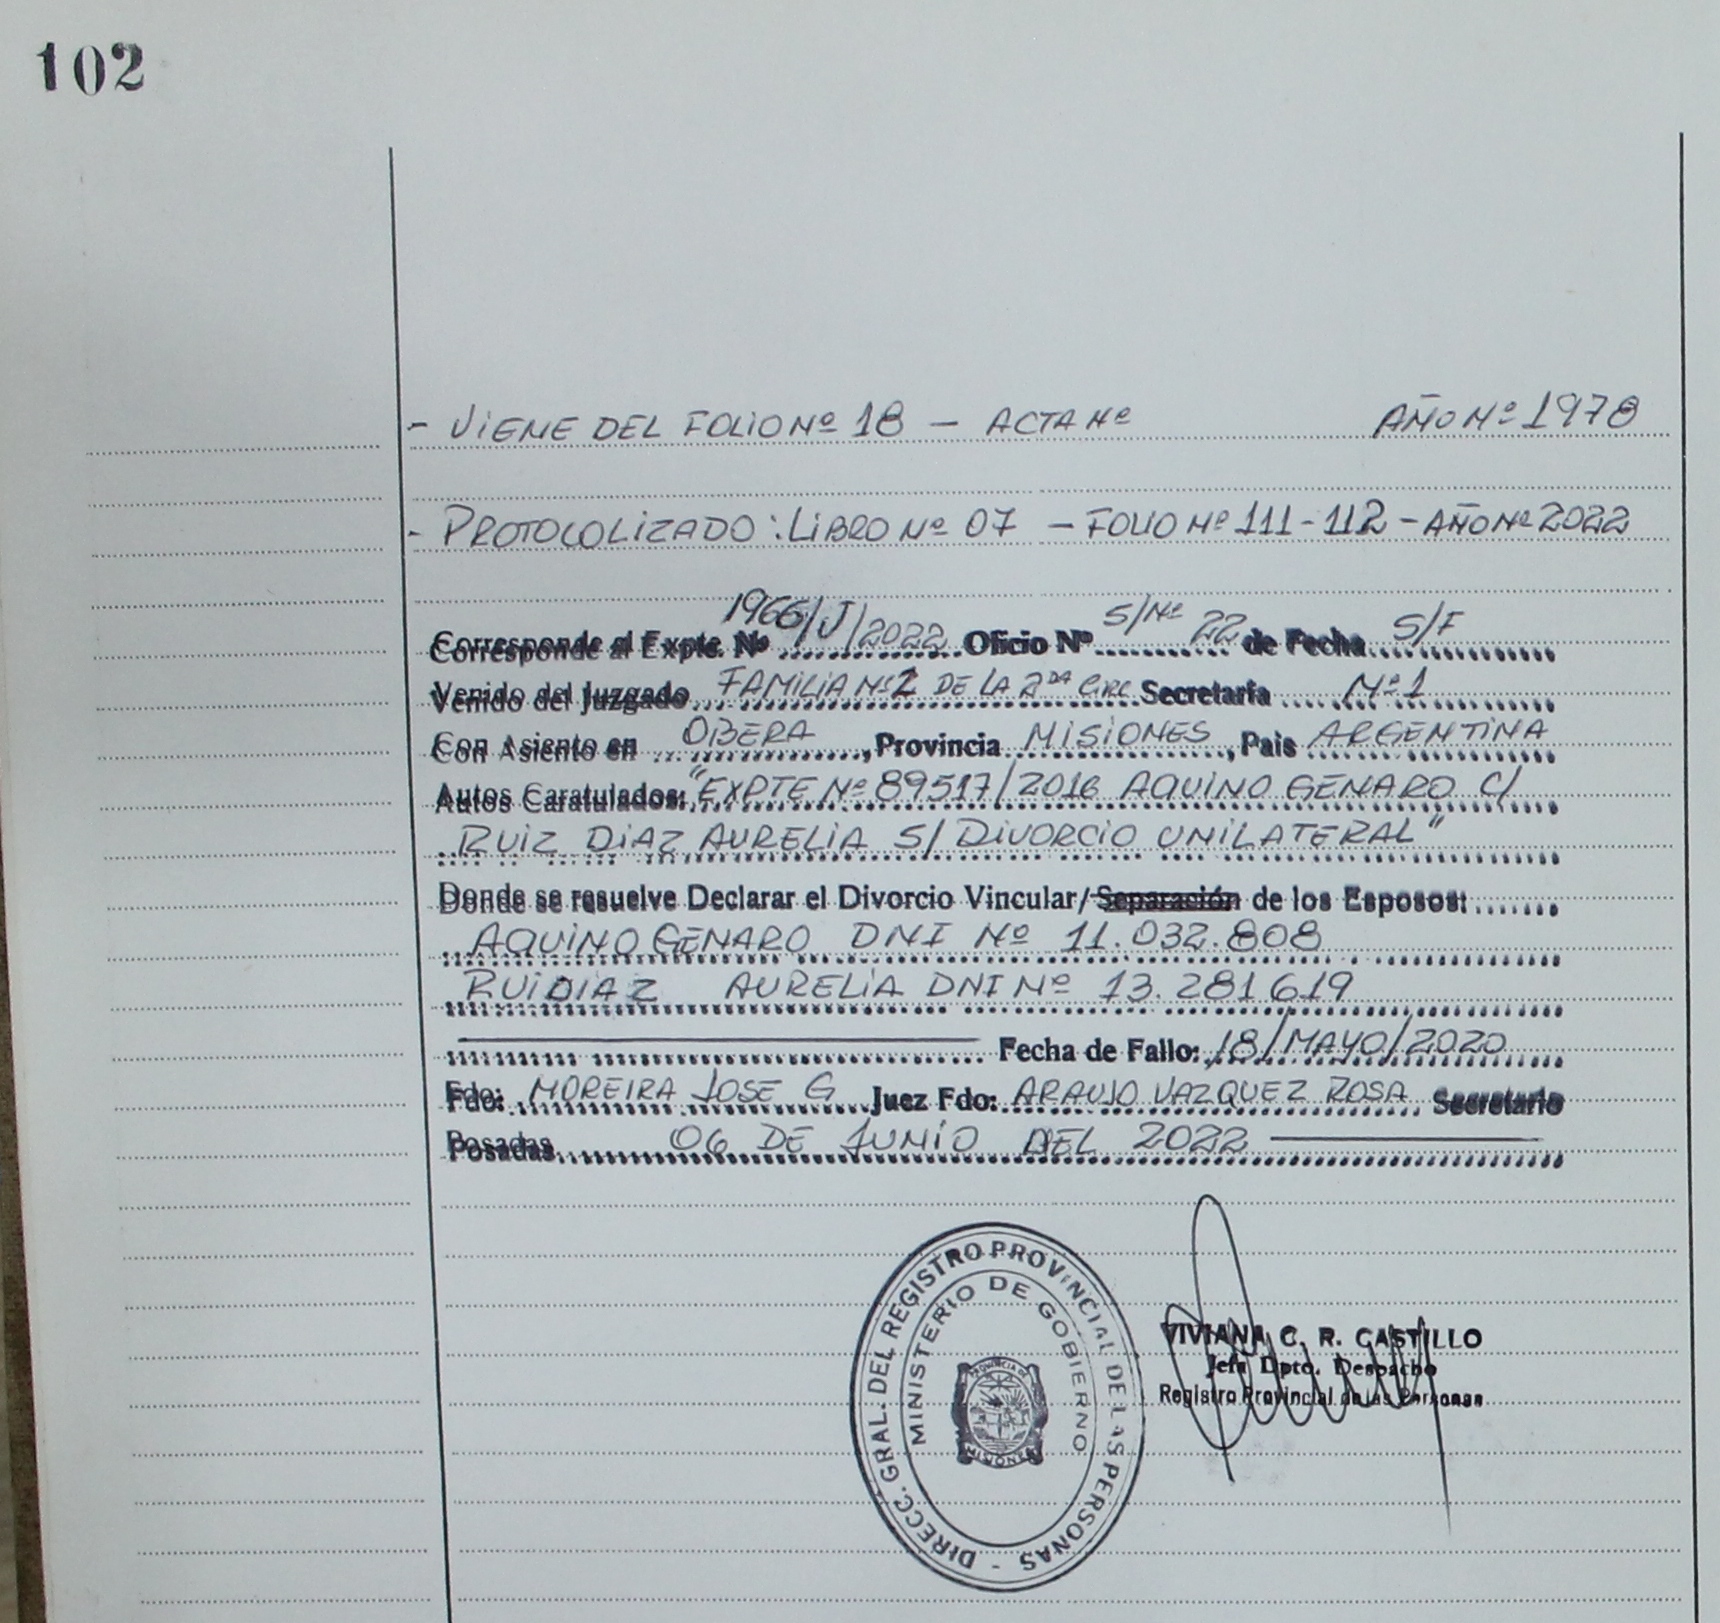 102
- VIENE DEL FOLIO Nº 18 - ACTA Nº AÑO Nº 1978
- PROTOCOLIZADO: LIBRO Nº 07 - FOLIO Nº 111-112 - AÑO Nº 2022
Corresponde al Expte. Nº 1966/J/2022 Oficio Nº S/Nº 22 de Fecha S/F
Venido del Juzgado FAMILIA Nº 2 DE LA 2DA CIRC Secretaría Nº 1
Con Asiento en OBERA, Provincia MISIONES, Pais ARGENTINA
Autos Caratulados: "EXPTE Nº 89517/2016 AQUINO GENARO C/
RUIZ DIAZ AURELIA S/ DIVORCIO UNILATERAL"
Donde se resuelve Declarar el Divorcio Vincular/Separación de los Esposos:
AQUINO GENARO DNI Nº 11.032.808
RUIDIAZ AURELIA DNI Nº 13.281619
Fecha de Fallo: 18/MAYO/2020
Fdo: MOREIRA JOSE G Juez Fdo: ARAUJO VAZQUEZ ROSA Secretario
Posadas, 06 DE JUNIO DEL 2022
DIRECC. GRAL. DEL REGISTRO PROVINCIAL DE LAS PERSONAS -
MINISTERIO DE GOBIERNO
PROVINCIA DE
MISIONES
VIVIANA C. R. CASTILLO
Jefa Dpto. Despacho
Registro Provincial de las Personas